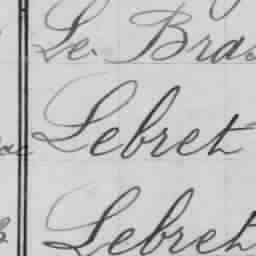 Le Bras
Lebret
Lebret